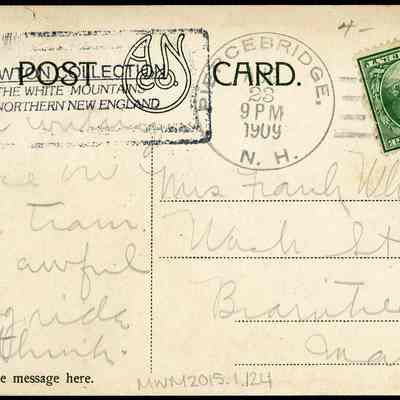 4-
POST CARD.
WTON COLLECTION
THE WHITE MOUNTAINS
NORTHERN NEW ENGLAND
PIERCEBRIDGE,
23
9 PM
1909
N. H.
writing
on
train.
awful
ride
think.
Mrs Frank
Wash St
Braintree
Mas
e message here.
MWM2015.1.124